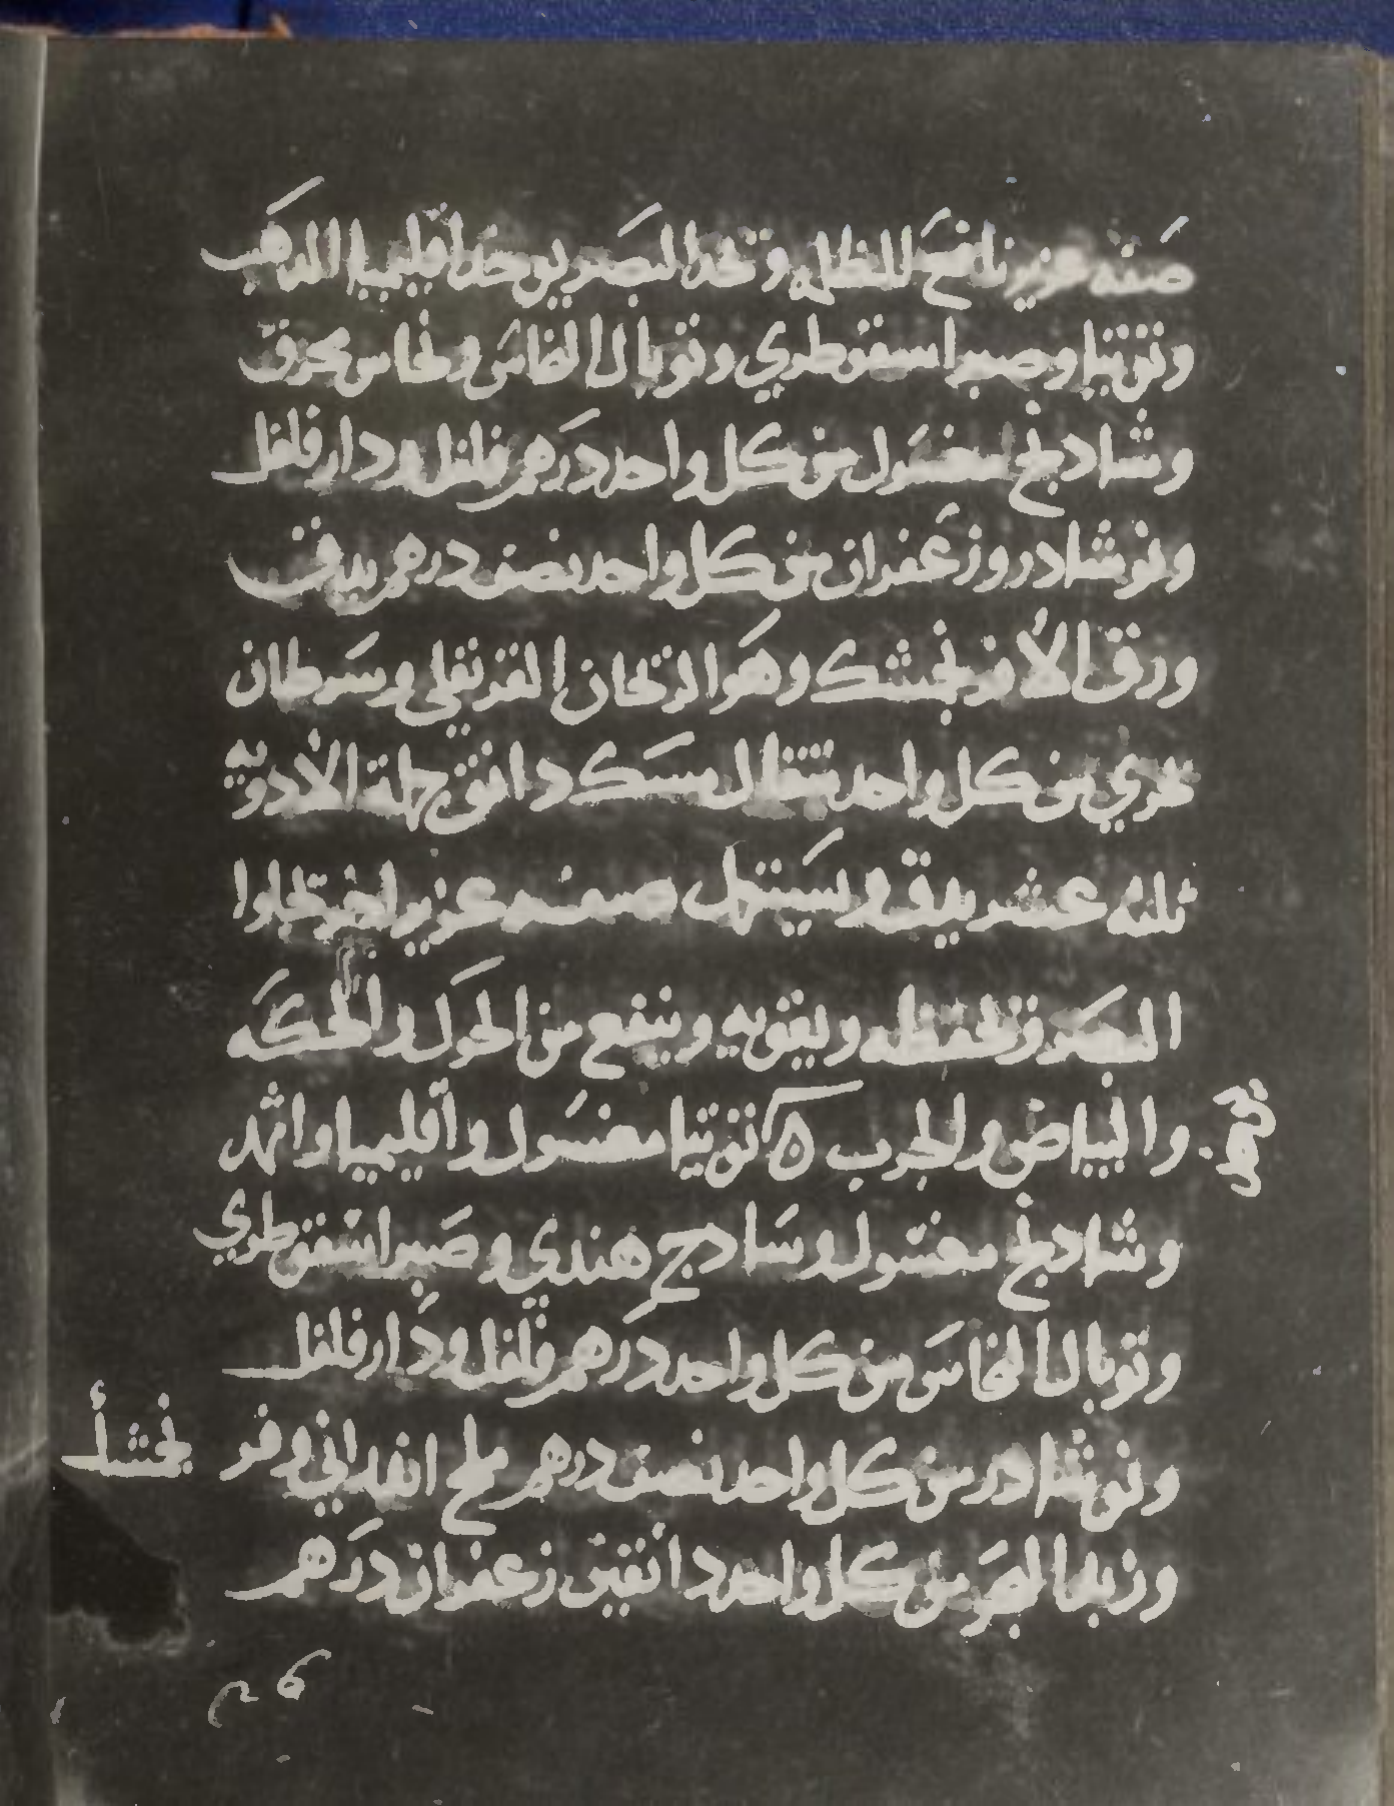 صفه عزيز نافع للظلمه وتحد البصر يوخذ اقليميا الذهب
وتوتيا وصبر اسقوطري وتوبال النحاس ونحاس محرق
وشادنج مغسول من كل واحد درهم فلفل ودار فلفل
ونوشادر وزعفران من كل واحد نصف درهم يدق
ورق الافرنجمشك وهو الريحان القرنفلي وسرطان
بحري من كل واحد مثقال مسك دانق جملة الادويه
ثلثه عشر يدق ويستعمل صفه عزيز اخر تجلوا
البصر وتحفظه ويقويه وينفع من الحول والحكه
والبياض والجرب ه توتيا مغسول واقليميا واثمد
وشادنج مغسول وساذج هندي وصبر اسقوطري
وتوبال النحاس من كل واحد درهم فلفل ودار فلفل
ونوشادر من كل واحد نصف درهم ملح اندراني
وزبد البحر من كل واحد دانقين زعفران درهم